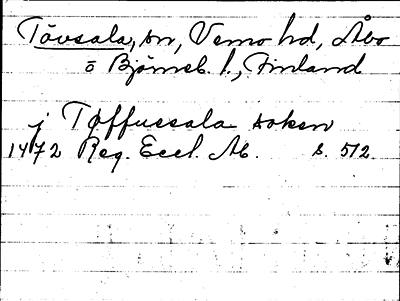 Tövsala, sn, Vemo hd, Åbo
o Björneb. l., Finland
j Töffuesala soken
1472 Reg. Eccl. Ab. s. 512.